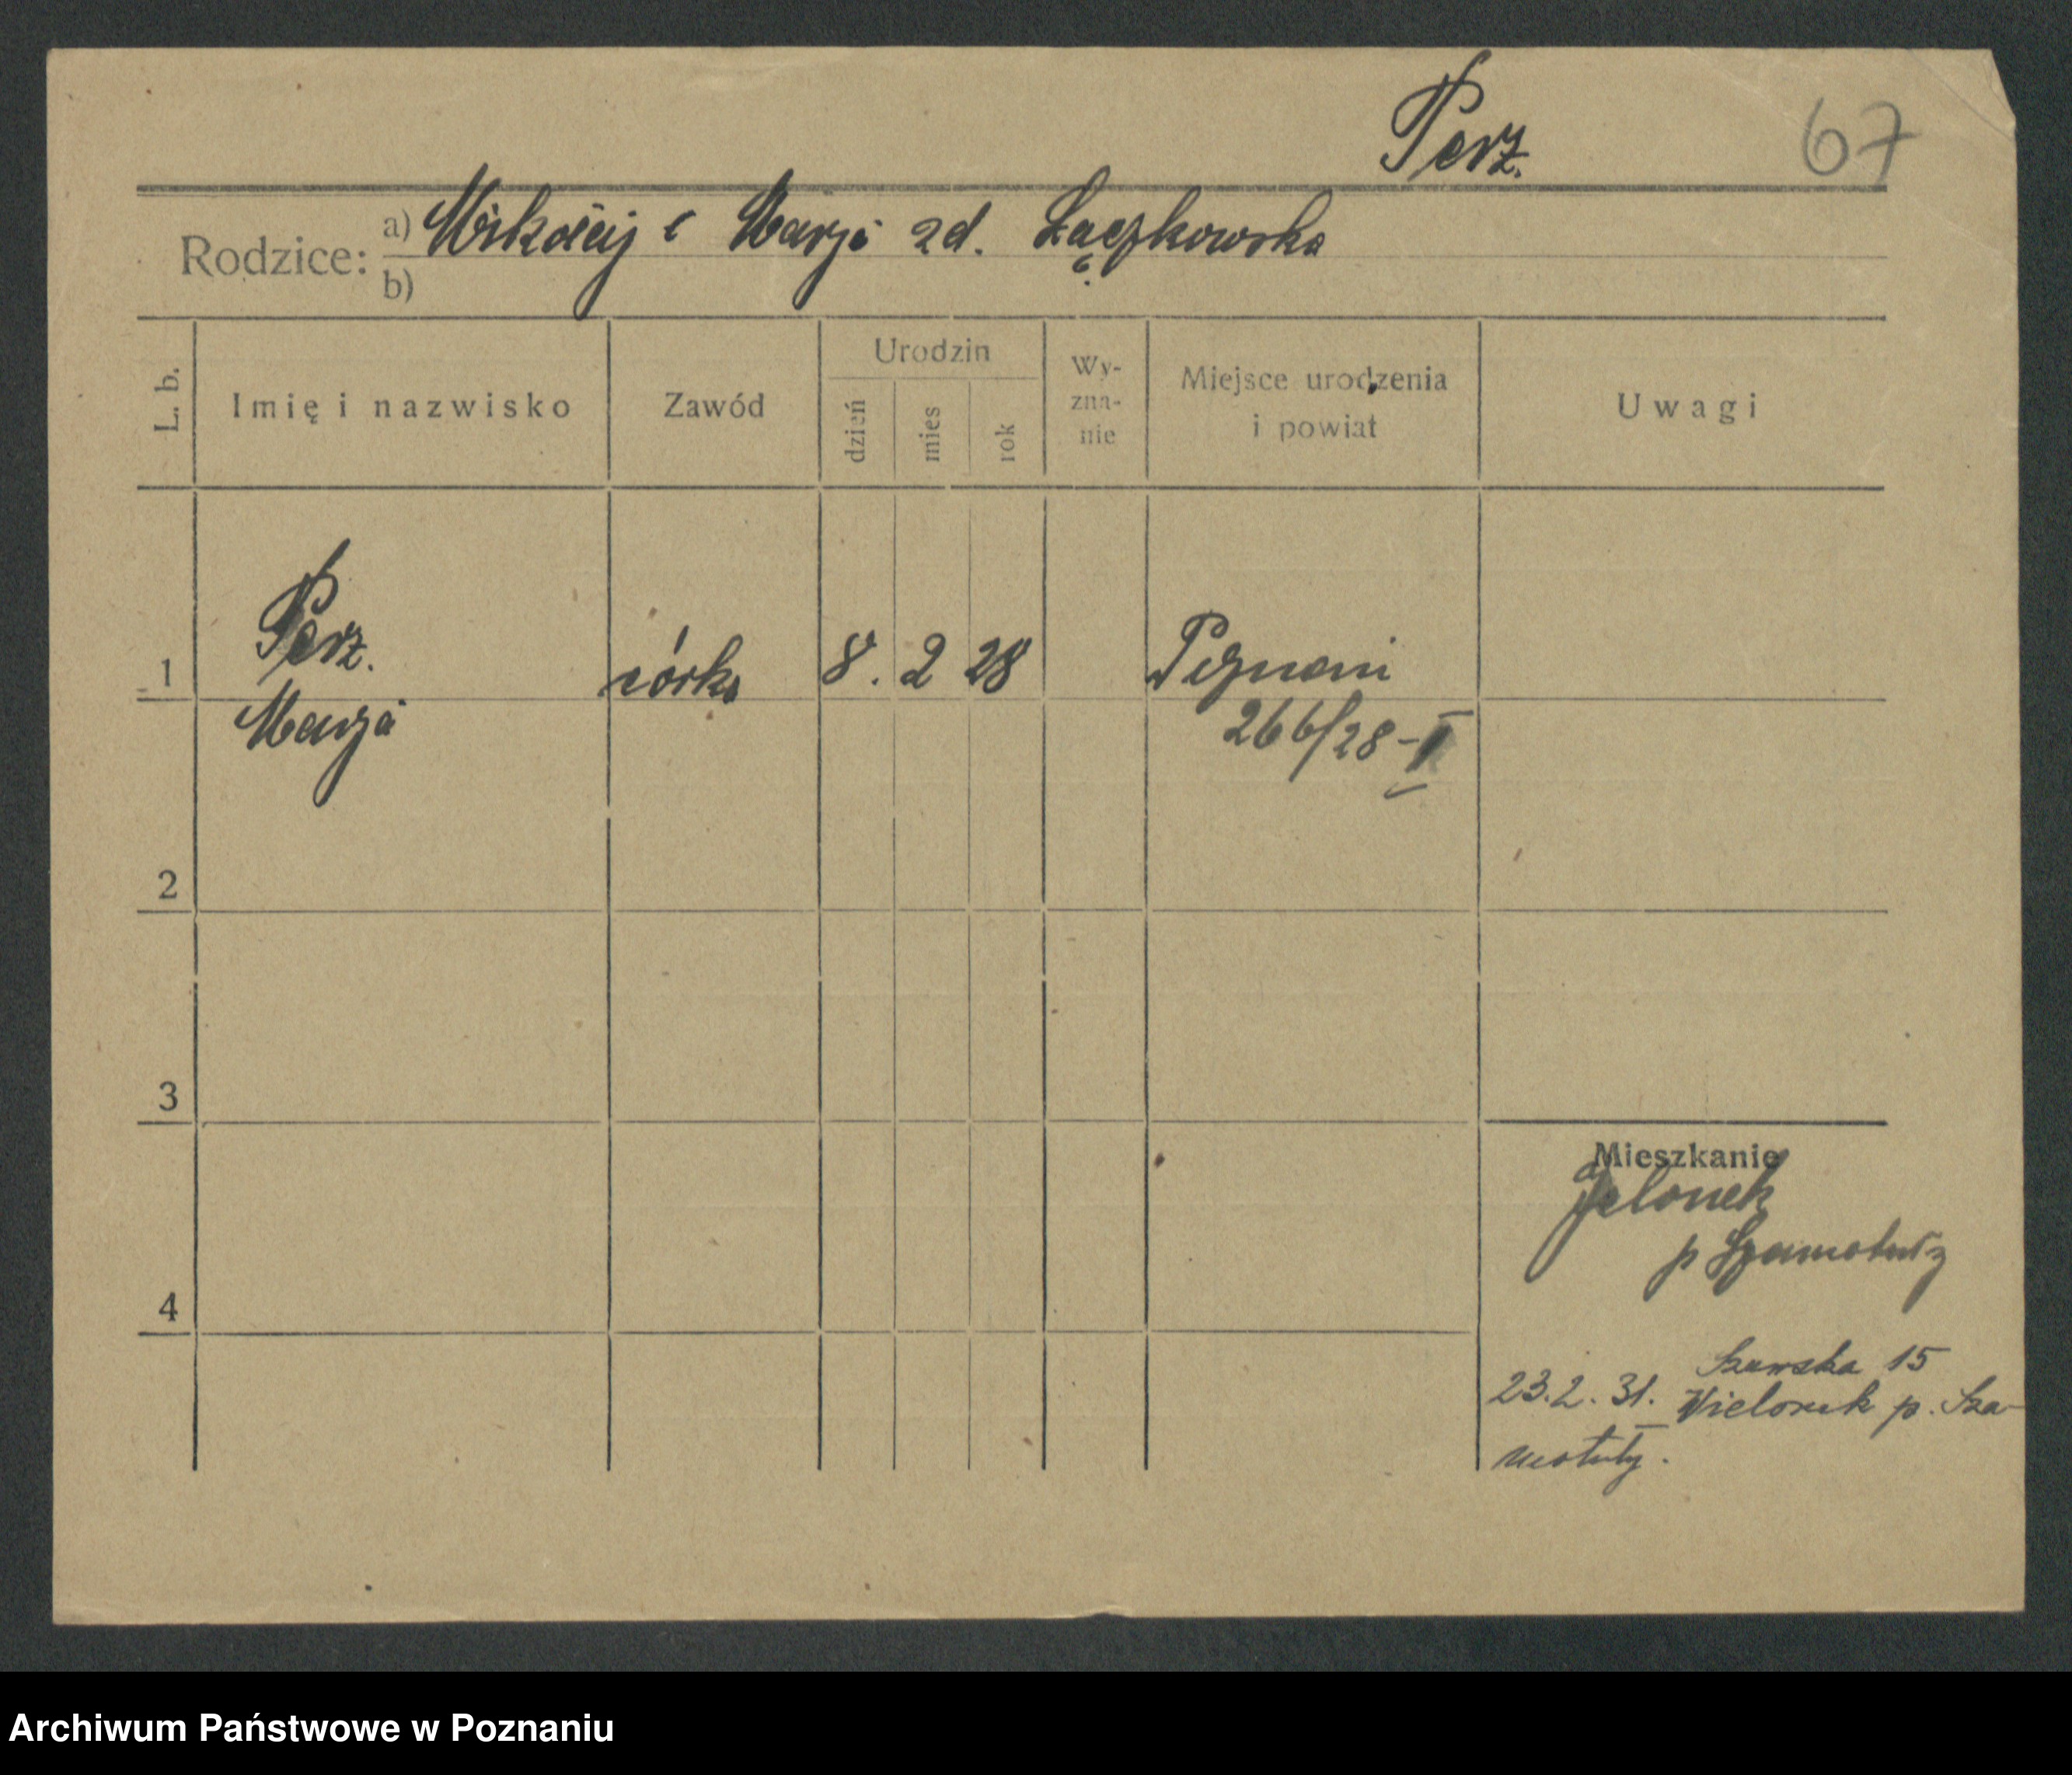 Perz.
67
Rodzice: a) Mikołaj i Marja zd. Łączkowska
b)
L. b.
Imię i nazwisko
Zawód
Urodzin
dzień
mies
rok
Wy-
zna-
nie
Miejsce urodzenia
i powiat
Uwagi
Perz.
1
córka 8. 2 28 Poznań
Marja
266/28-II
2
3
Mieszkanie
Jelonek
p Szamotuły
4
15
23.2.31. Wielonek p. Sza-
motuły.
Archiwum Państwowe w Poznaniu